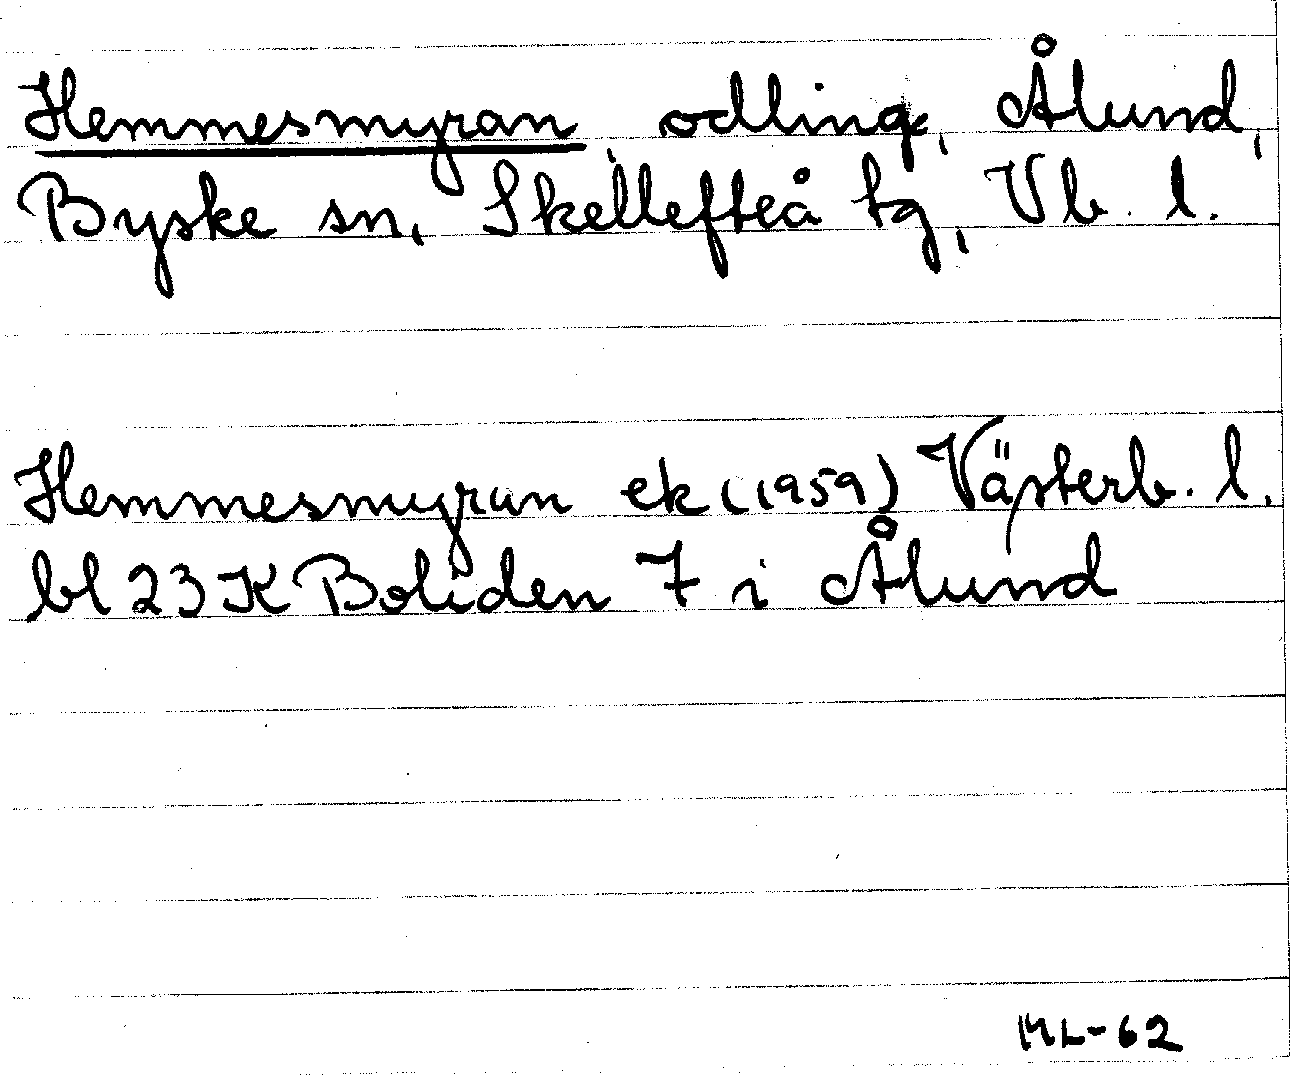 Hemmesmyran, odling, Ålund,
Byske sn, Skellefteå tg, Vb. l.
Hemmesmyran ek (1959) Västerb. l.
bl 23 K Boliden 7 i Ålund
ML-62